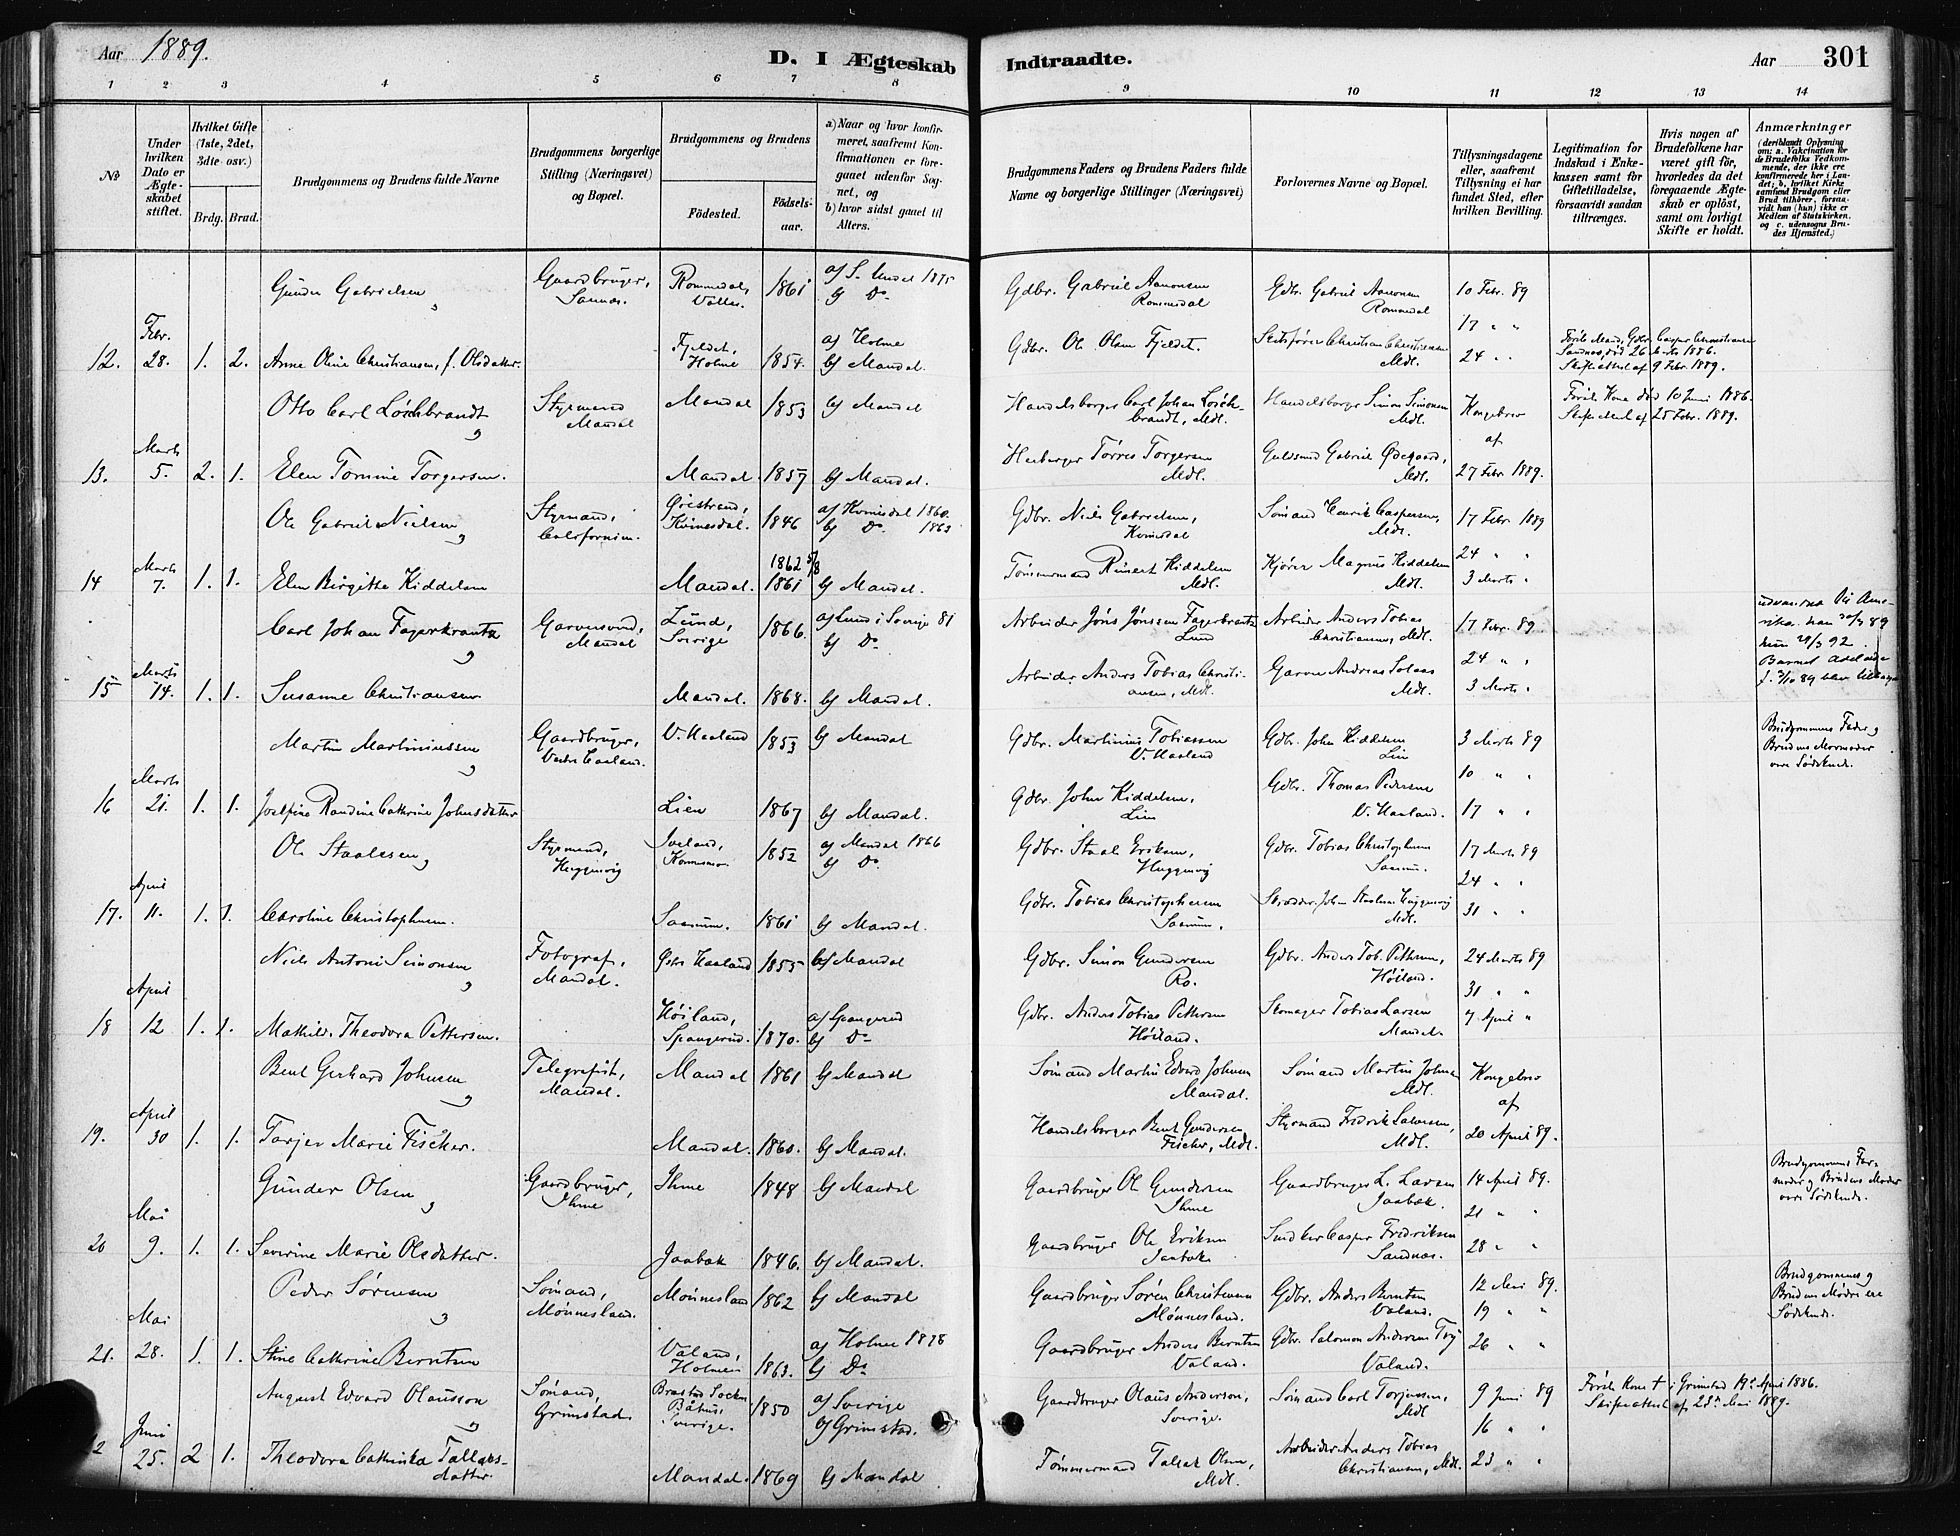 Aar 1889.
D. I Ægteskab Indtraadte.
Aar 301
1 2 3 4 5 6 7 8 9 10 11 12 13 14
No
Under hvilken Dato er Ægteskabet stiftet.
Hvilket Gifte (1ste, 2det, 3die osv.)
Brdg. Brud.
Brudgommens og Brudens fulde Navne
Brudgommens borgerlige Stilling (Næringsvei) og Bopæl.
Brudgommens og Brudens
Födested. Födselsaar.
a) Naar og hvor konfirmeret, saafremt Konfirmationen er foregaaet udenfor Sognet, og
b) hvor sidst gaaet til Alters.
Brudgommens Faders og Brudens Faders fulde Navne og borgerlige Stillinger (Næringsvei)
Forlovernes Navne og Bopæl.
Tillysningsdagene eller, saafremt Tillysning ei har fundet Sted, efter hvilken Bevilling.
Legitimation for Indskud i Enkekassen samt for Giftetilladelse, forsaavidt saadan tiltrænges.
Hvis nogen af Brudefolkene har været gift før, hvorledes da det foregaaende Ægteskab er opløst, samt om lovligt Skifte er holdt.
Anmærkninger (deriblandt Oplysning om: a. Vakcination for de Brudefolks Vedkommende, der ikke ere konfirmerede her i Landet; b. hvilket Kirkesamfund Brudgom eller Brud tilhører, forsaavidt han (hun) ikke er Medlem af Statskirken. og c. udensogns Brudes Hjemsted.)
Gunder Gabrielsen, Gaardbruger, Romsedal, Valle. 1861 af S. Undal 1875 bf Do Gdbr. Gabriel Aanonsen Gdbr. Gabriel Aanonsen 10 Febr. 89
17 " "
12. Febr. 28. 1. 2. Anne Oline Christiansen, f. Olsdatter. Fjeldet, Holme 1854. af Holme bf Mandal. Gdbr. Ole Olsen Fjeldet. Christian Christiansen Mdl. 24 " " Første Mand, Gdbr. Casper Christiansen Sandnes, død 1886. Skifteattest af 9 Febr. 1889.
Otto Carl Löschbrandt, Styrmand Mandal Mandal 1853 bf Mandal Handelsborger Carl Johan Löschbrandt, Mdl. Handelsborger Simon Simonsen Mdl. Kongebrev af Første Kone død 10 Juni 1886. Skifteattest af 25 Febr. 1889.
13. Marts 5. 2. 1. Elen Tomine Torgersen. Mandal 1857 bf Mandal. Torres Torgersen Mdl. Guldsmed Gabriel Ødegaard, Mdl. 27 Febr 1889.
Ole Gabriel Nielsen, Styrmand, Californien. Kvinesdal. 1846 af Kvinesdal 1860. bf Do 1863 Gdbr. Niels Gabrielsen, Kvinesdal Sømand Henrik Caspersen, Mdl. 17 Febr 1889
24 " "
14 Marts 7. 1. 1. Elen Birgitte Kiddelsen Mandal. 1862 5/8 1861 bf Mandal. Tømmermand Reinert Kiddelsen Mdl. Kjører Magnus Kiddelsen Mdl. 3 Marts "
Carl Johan Fagerkrantz, Garversvend, Mandal Lund, Sverige 1866. af Lund i Sverige 81 bf Do Arbeider Jöns Jönssen Fagerkrantz Lund Arbeider Anders Tobias Christiansen, Mdl. 17 Febr. 89
24 " "
15 Marts 14. 1. 1. Susanne Christiansen Mandal. 1868. bf Mandal. Arbeider Anders Tobias Christiansen, Mdl. Garver Andreas Mdl. 3 Marts "
Martin Martiniussen, Gaardbruger, V. Haaland 1853 bf Mandal Gdbr. Martinius Tobiassen V. Haaland Gdbr. John Kiddelsen Lien 3 Marts 89 Brudgommens Fader og Brudens Mormoder ere Sødskende.
10 " "
16 Marts 21. 1. 1. Josefine Randine Cathrine Johnsdatter Lien 1867 bf Mandal. Gdbr. John Kiddelsen, Lien Gdbr. Thomas Pedersen V. Haaland. 17 " "
Ole Staalesen, Styrmand, Hoggenvig 1852 af Mandal 1866 bf Do Gdbr. Staale Eriksen, Gdbr. Tobias Christophersen 17 Marts 89
24 " "
17. April 11. 1. 1. Caroline Christophersen. 1861 bf Mandal. Gdbr. Tobias Christophersen Mdl. 31 " "
Niels Antoni Simonsen, Fotograf, Mandal. Østre Haaland 1855 bf Mandal Gdbr. Simon Gundersen Ro. Gdbr. Anders Tob. Pettersen, Höiland. 24 Marts 89
31 " "
18 April 12 1. 1. Mathilde Theodora Pettersen. Höiland, Spangereid. 1870. af Spangereid bf Do Gdbr. Anders Tobias Pettersen Höiland. Skomager Tobias Larsen Mandal. 7 April "
Bent Gerhard Johnsen, Telegrafist, Mandal. Mandal 1861 bf Mandal Sømand Martin Edvard Johnsen Mandal. Sømand Martin Johnsen Mdl. Kongebrev af
19. April 30 1. 1. Tarjer Marie Fischer. Mandal. 1860. bf Mandal. Handelsborger Bent Gundersen Fischer, Mdl. Styrmand Fredrik Salvesen, Mdl. 20 April 89.
Gunder Olsen, Gaardbruger, Ihme Ihme 1848 bf Mandal Gaardbruger Ole Gundersen Ihme Gaardbruger L. Larsen Jaabæk. 14 April 89. Brudgommens Farmoder og Brudens Moder vare Sødskende.
21 " "
20 Mai 9. 1. 1. Severine Marie Olsdatter. Jaabæk 1846. bf Mandal. Gaardbruger Ole Eriksen Jaabæk Casper Fredriksen Sandnæs. 28 " "
Peder Sørensen, Sømand, Mønnesland. Mønnesland 1862 bf Mandal Gaardbruger Søren Christensen Mønnesland. Gdbr. Anders Berntsen Valand. 12 Mai 89. Brudgommens og Brudens Mødre ere Sødskende.
19 " "
21. Mai 28. 1. 1. Stine Cathrine Berntsen Valand, Holme 1863. af Holme 1878 bf Do Gaardbruger Anders Berntsen Valand. Gdbr. Salomon Andersen Valand. 26 " "
August Edvard Olausson, Sømand, Grimstad Brastad Socken Båhus, Sverige. 1850 af Sverige bf Grimstad. Gaardbruger Olaus Anderson, Sverige. Sømand Carl Torjussen, Mdl 9 Juni 89 Første Kone † i Grimstad 19de April 1886. Skifteattest af 28de Mai 1889.
16 " "
2 Juni 25. 2 1. Theodora Cathinka Tallaksdatter. Mandal. 1869 bf Mandal Tømmermand Talak Olsen, Mdl. Arbeider Anders Tobias Christiansen, Mdl. 23 " "